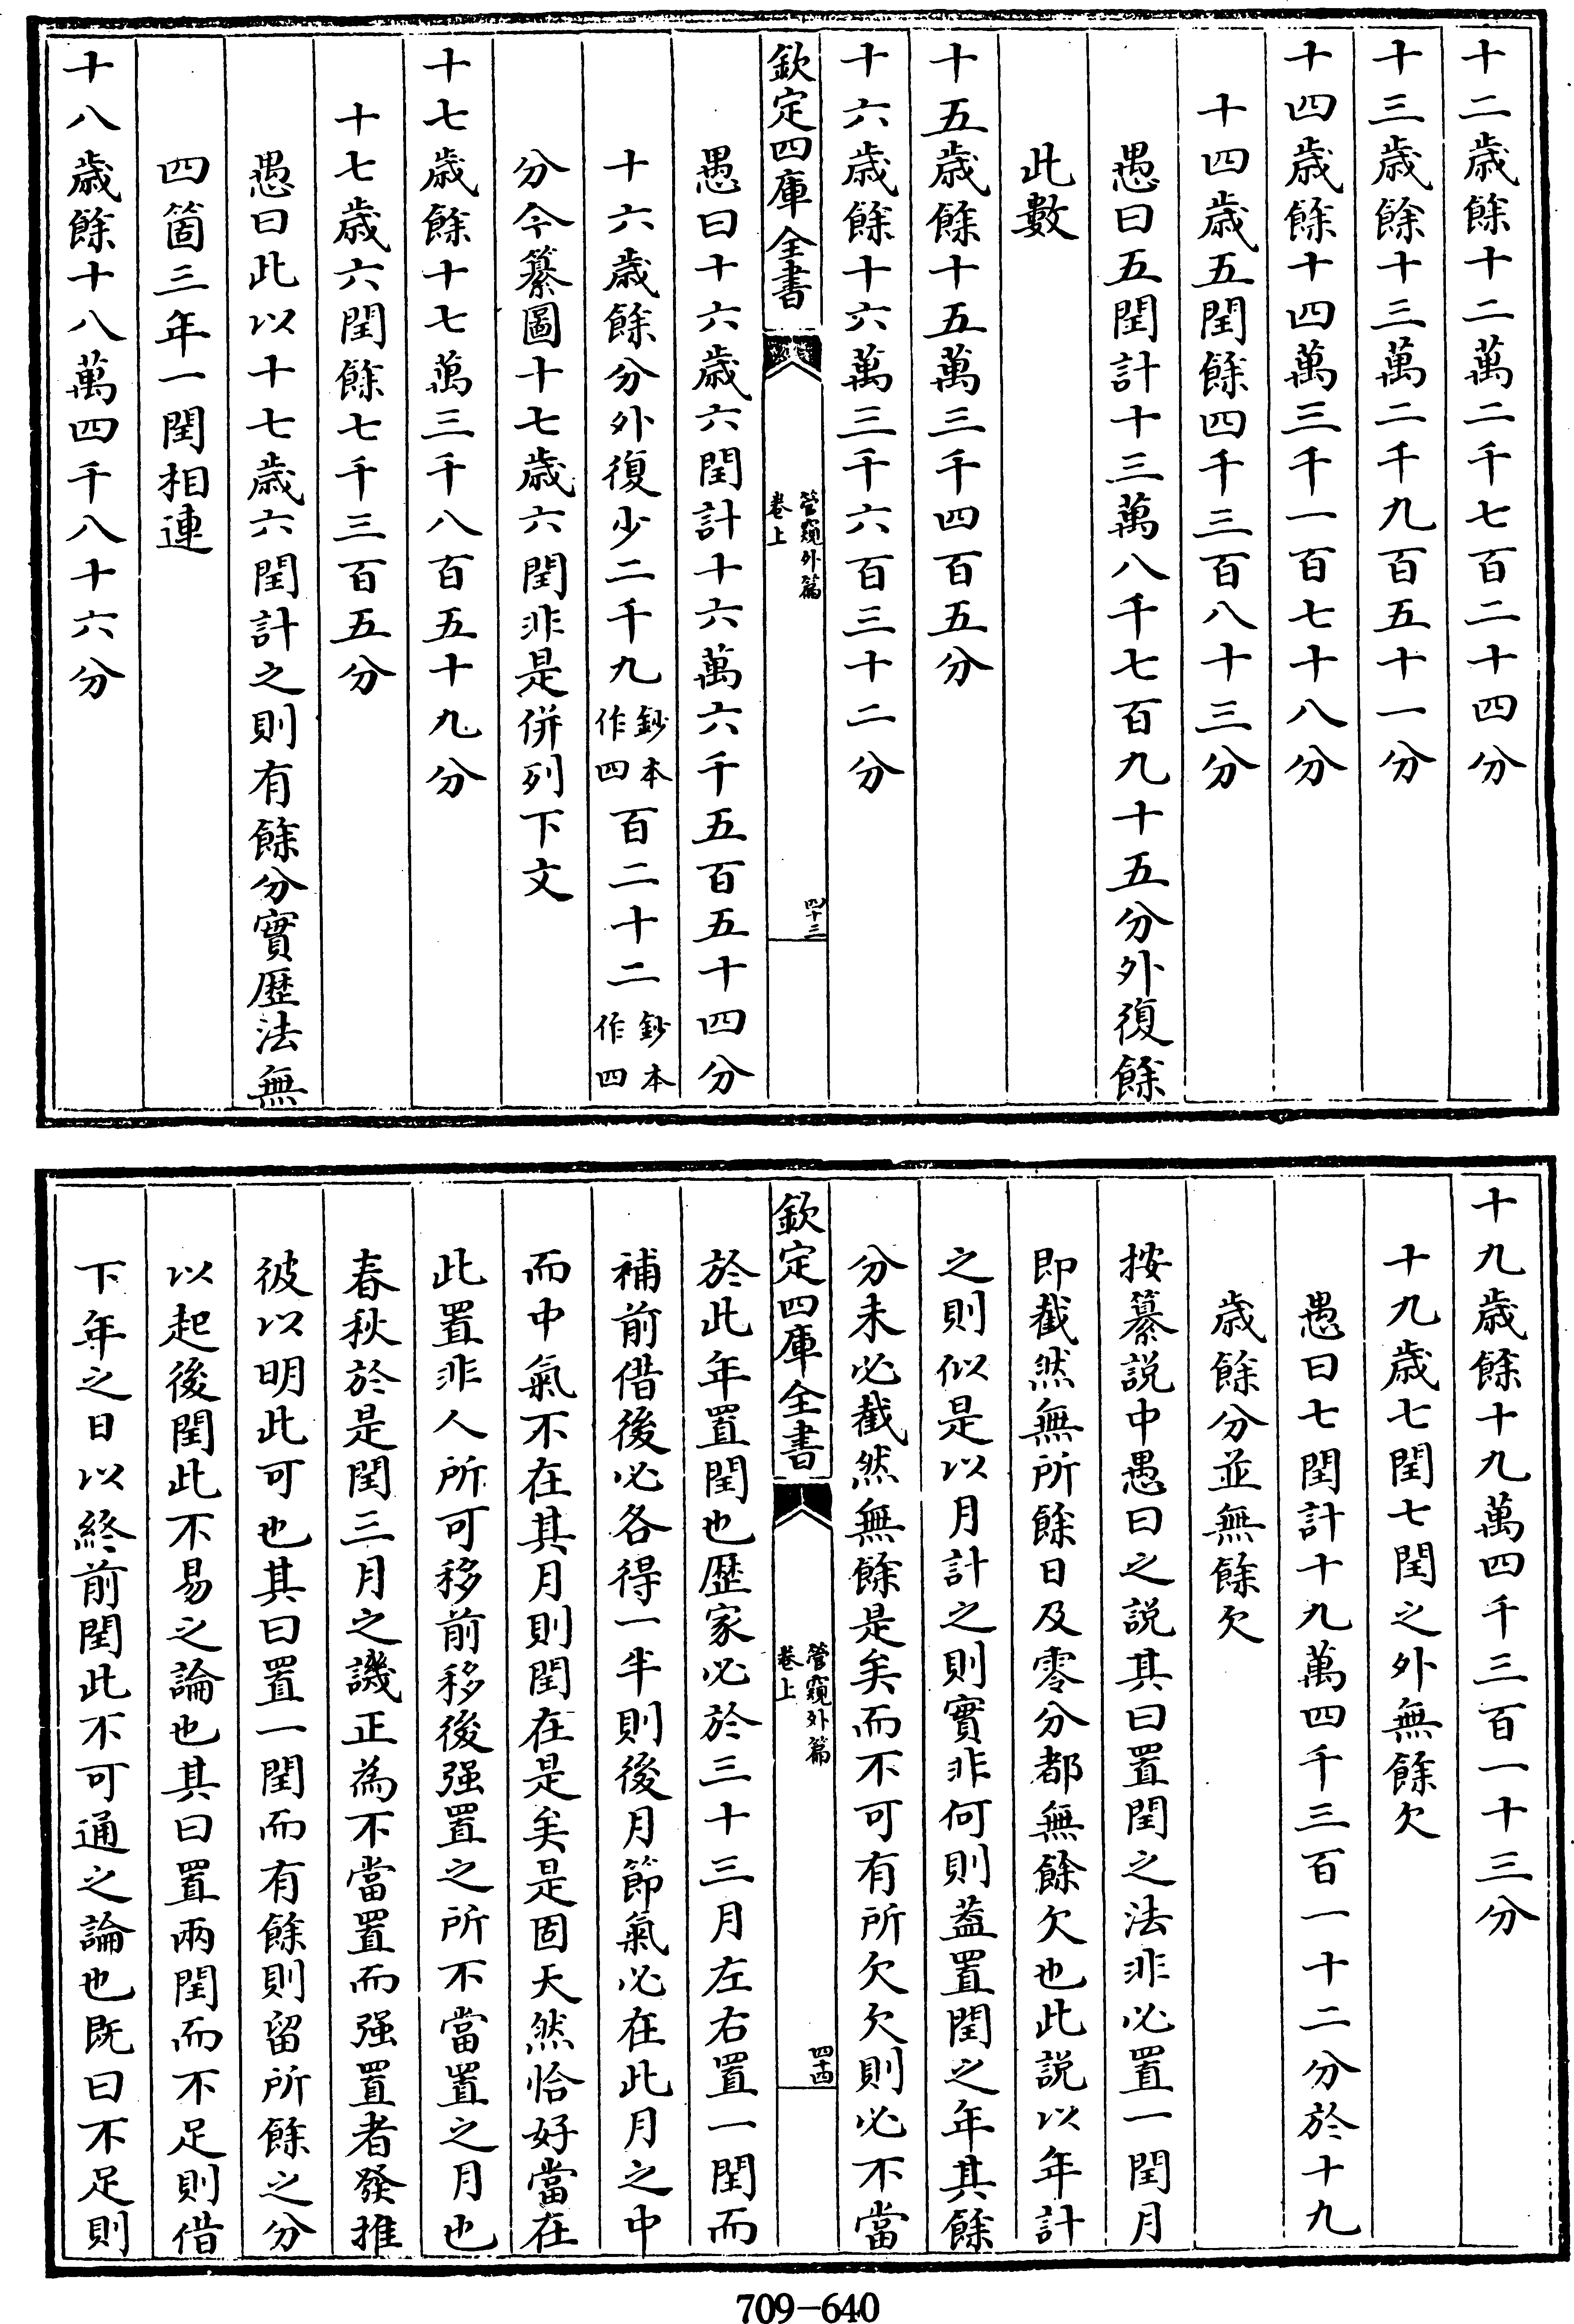 十二歳餘十二萬二千七百二十四分
十三歳餘十三萬二千九百五十一分
十四歳餘十四萬三千一百七十八分
十四歳五閏餘四千三百八十三分
愚曰五閏計十三萬八千七百九十五分外復餘
此數
十五歳餘十五萬三千四百五分
十六歳餘十六萬三千六百三十二分
欽定四庫全書
管窺外篇
卷上
四十三
愚曰十六歳六閏計十六萬六千五百五十四分
十六歳餘分外復少二千九鈔本作四百二十二鈔本作四
分今纂圖十七歳六閏非是併列下文
十七歳餘十七萬三千八百五十九分
十七歳六閏餘七千三百五分
愚曰此以十七歳六閏計之則有餘分實歴法無
四箇三年一閏相連
十八歳餘十八萬四千八十六分
十九歳餘十九萬四千三百一十三分
十九歳七閏七閏之外無餘欠
愚曰七閏計十九萬四千三百一十二分於十九
歳餘分並無餘欠
按纂説中愚曰之説其曰置閏之法非必置一閏月
即截然無所餘日及零分都無餘欠也此説以年計
之則似是以月計之則實非何則葢置閏之年其餘
分未必截然無餘是矣而不可有所欠欠則必不當
欽定四庫全書
管窺外篇
卷上
四十四
於此年置閏也歴家必於三十三月左右置一閏而
補前借後必各得一半則後月節氣必在此月之中
而中氣不在其月則閏在是矣是固天然恰好當在
此置非人所可移前移後强置之所不當置之月也
春秋於是閏三月之譏正為不當置而强置者發推
彼以明此可也其曰置一閏而有餘則留所餘之分
以起後閏此不易之論也其曰置兩閏而不足則借
下年之日以終前閏此不可通之論也既曰不足則
709-640